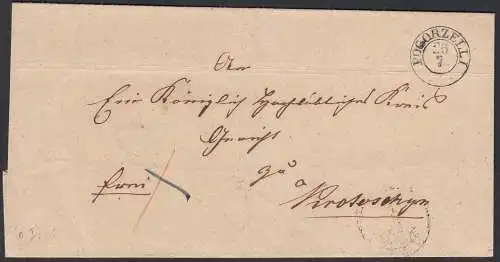 POGORZELLA
25
7
An
Ein Königlich Hochlöbliches Kreis
Gericht
zu
frei
Krotoschyn